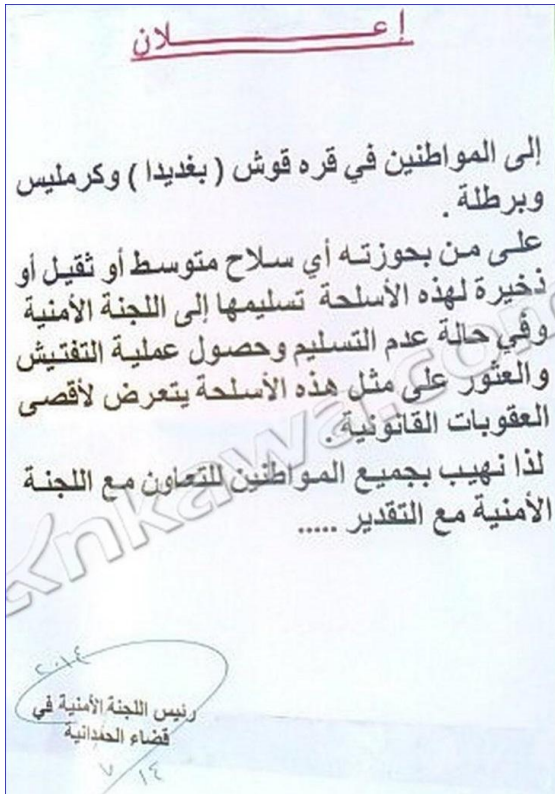 إعـــــــلان
إلى المواطنين في قره قوش ( بغديدا ) وكرمليس
وبرطلة .
على من بحوزته أي سلاح متوسط أو ثقيل أو
ذخيرة لهذه الأسلحة تسليمها إلى اللجنة الأمنية
وفي حالة عدم التسليم وحصول عملية التفتيش
والعثور على مثل هذه الأسلحة يتعرض لأقصى
العقوبات القانونية .
لذا نهيب بجميع المواطنين للتعاون مع اللجنة
الأمنية مع التقدير .....
ankawa.com
٢٠١٤
رئيس اللجنة الأمنية في
قضاء الحمدانية
٧/١٤